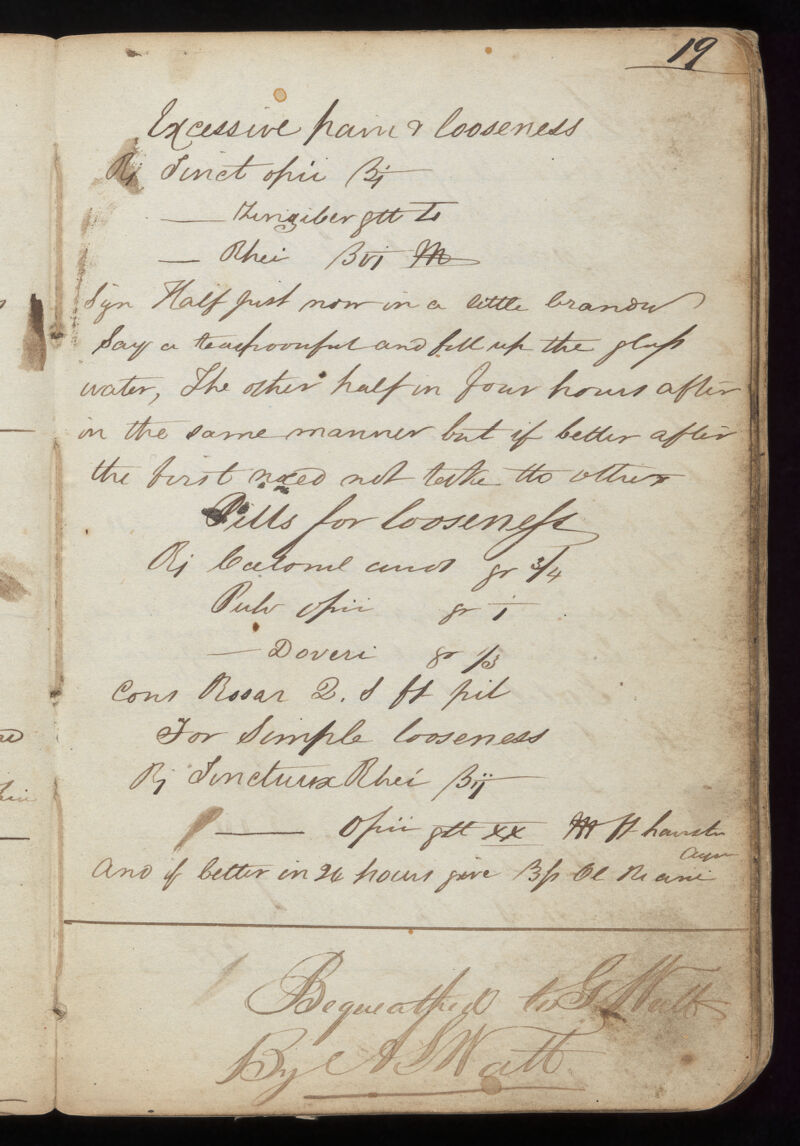 19
Excessive pain & looseness
Rj Tinct opii ʒj
— Zingiber gtt
— Rhei ʒvj M
Sgn Half just now in a little brandy
Say a teaspoonful and fill up the glass
water, The other half in four hours after
in the same manner but if better after
the first need not take the other
Pills for looseness
Rj Calomel gr 3/4
Pulv opii gr i
— Doveri gr 1/3
Cons Rosar Q. S ft pil
For Simple looseness
Rj Tincturæ Rhei ʒij
— Opii gtt xx M ft haustu
And if better in 24 hours give Ol Ricini
Bequeathed to G Watt
By A S Watt